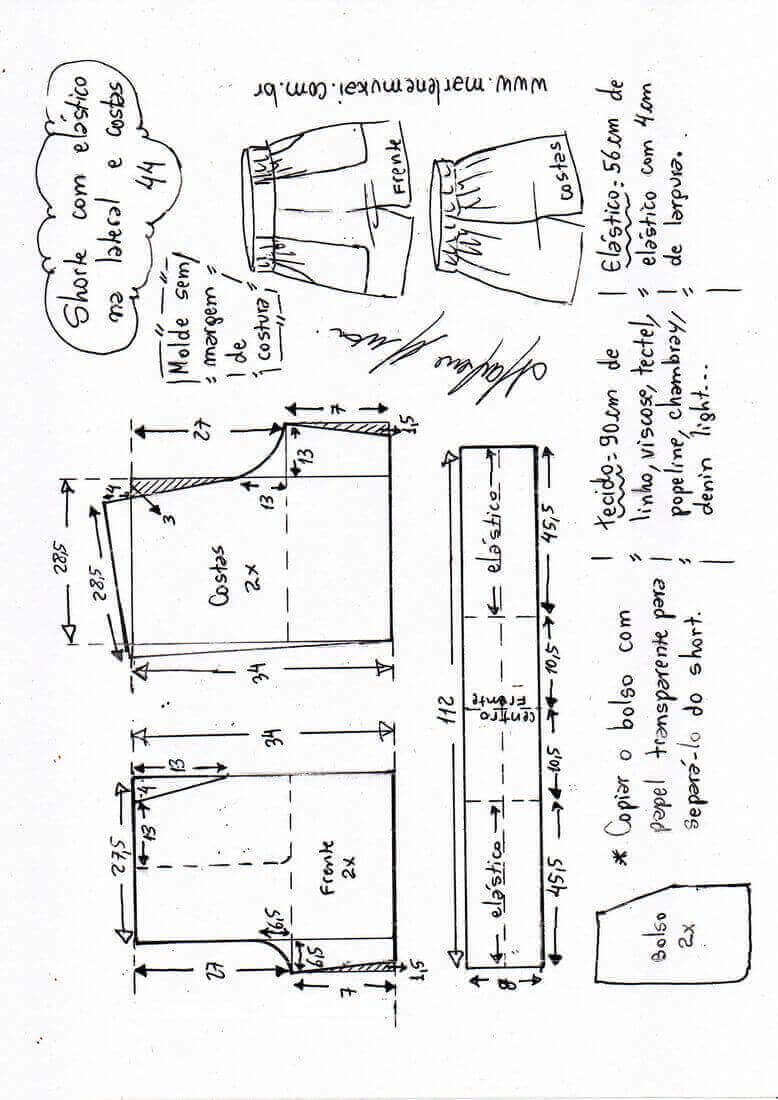 Shorte com elástico
eu lateral e costas
44
Molde sem
margem
de
costura
www.marlenemukai.com.br
Frente
costas
Marlene Mukai
27
7
4
3
13
13
1,5
28,5
28,5
Costas
2x
34
34
13
4
13
27,5
Frente
2x
6,5
6,5
27
7
1,5
112
elástico
centro
Frente
elástico
45,5
10,5
10,5
45,5
8
Bolso
2x
* Copiar o bolso com
papel transparente para
separá-lo do short.
Tecido = 90cm de
linho, viscose, tectel,
popeline, chambray,
denin light...
Elástico = 56cm de
elástico com 4cm
de largura.